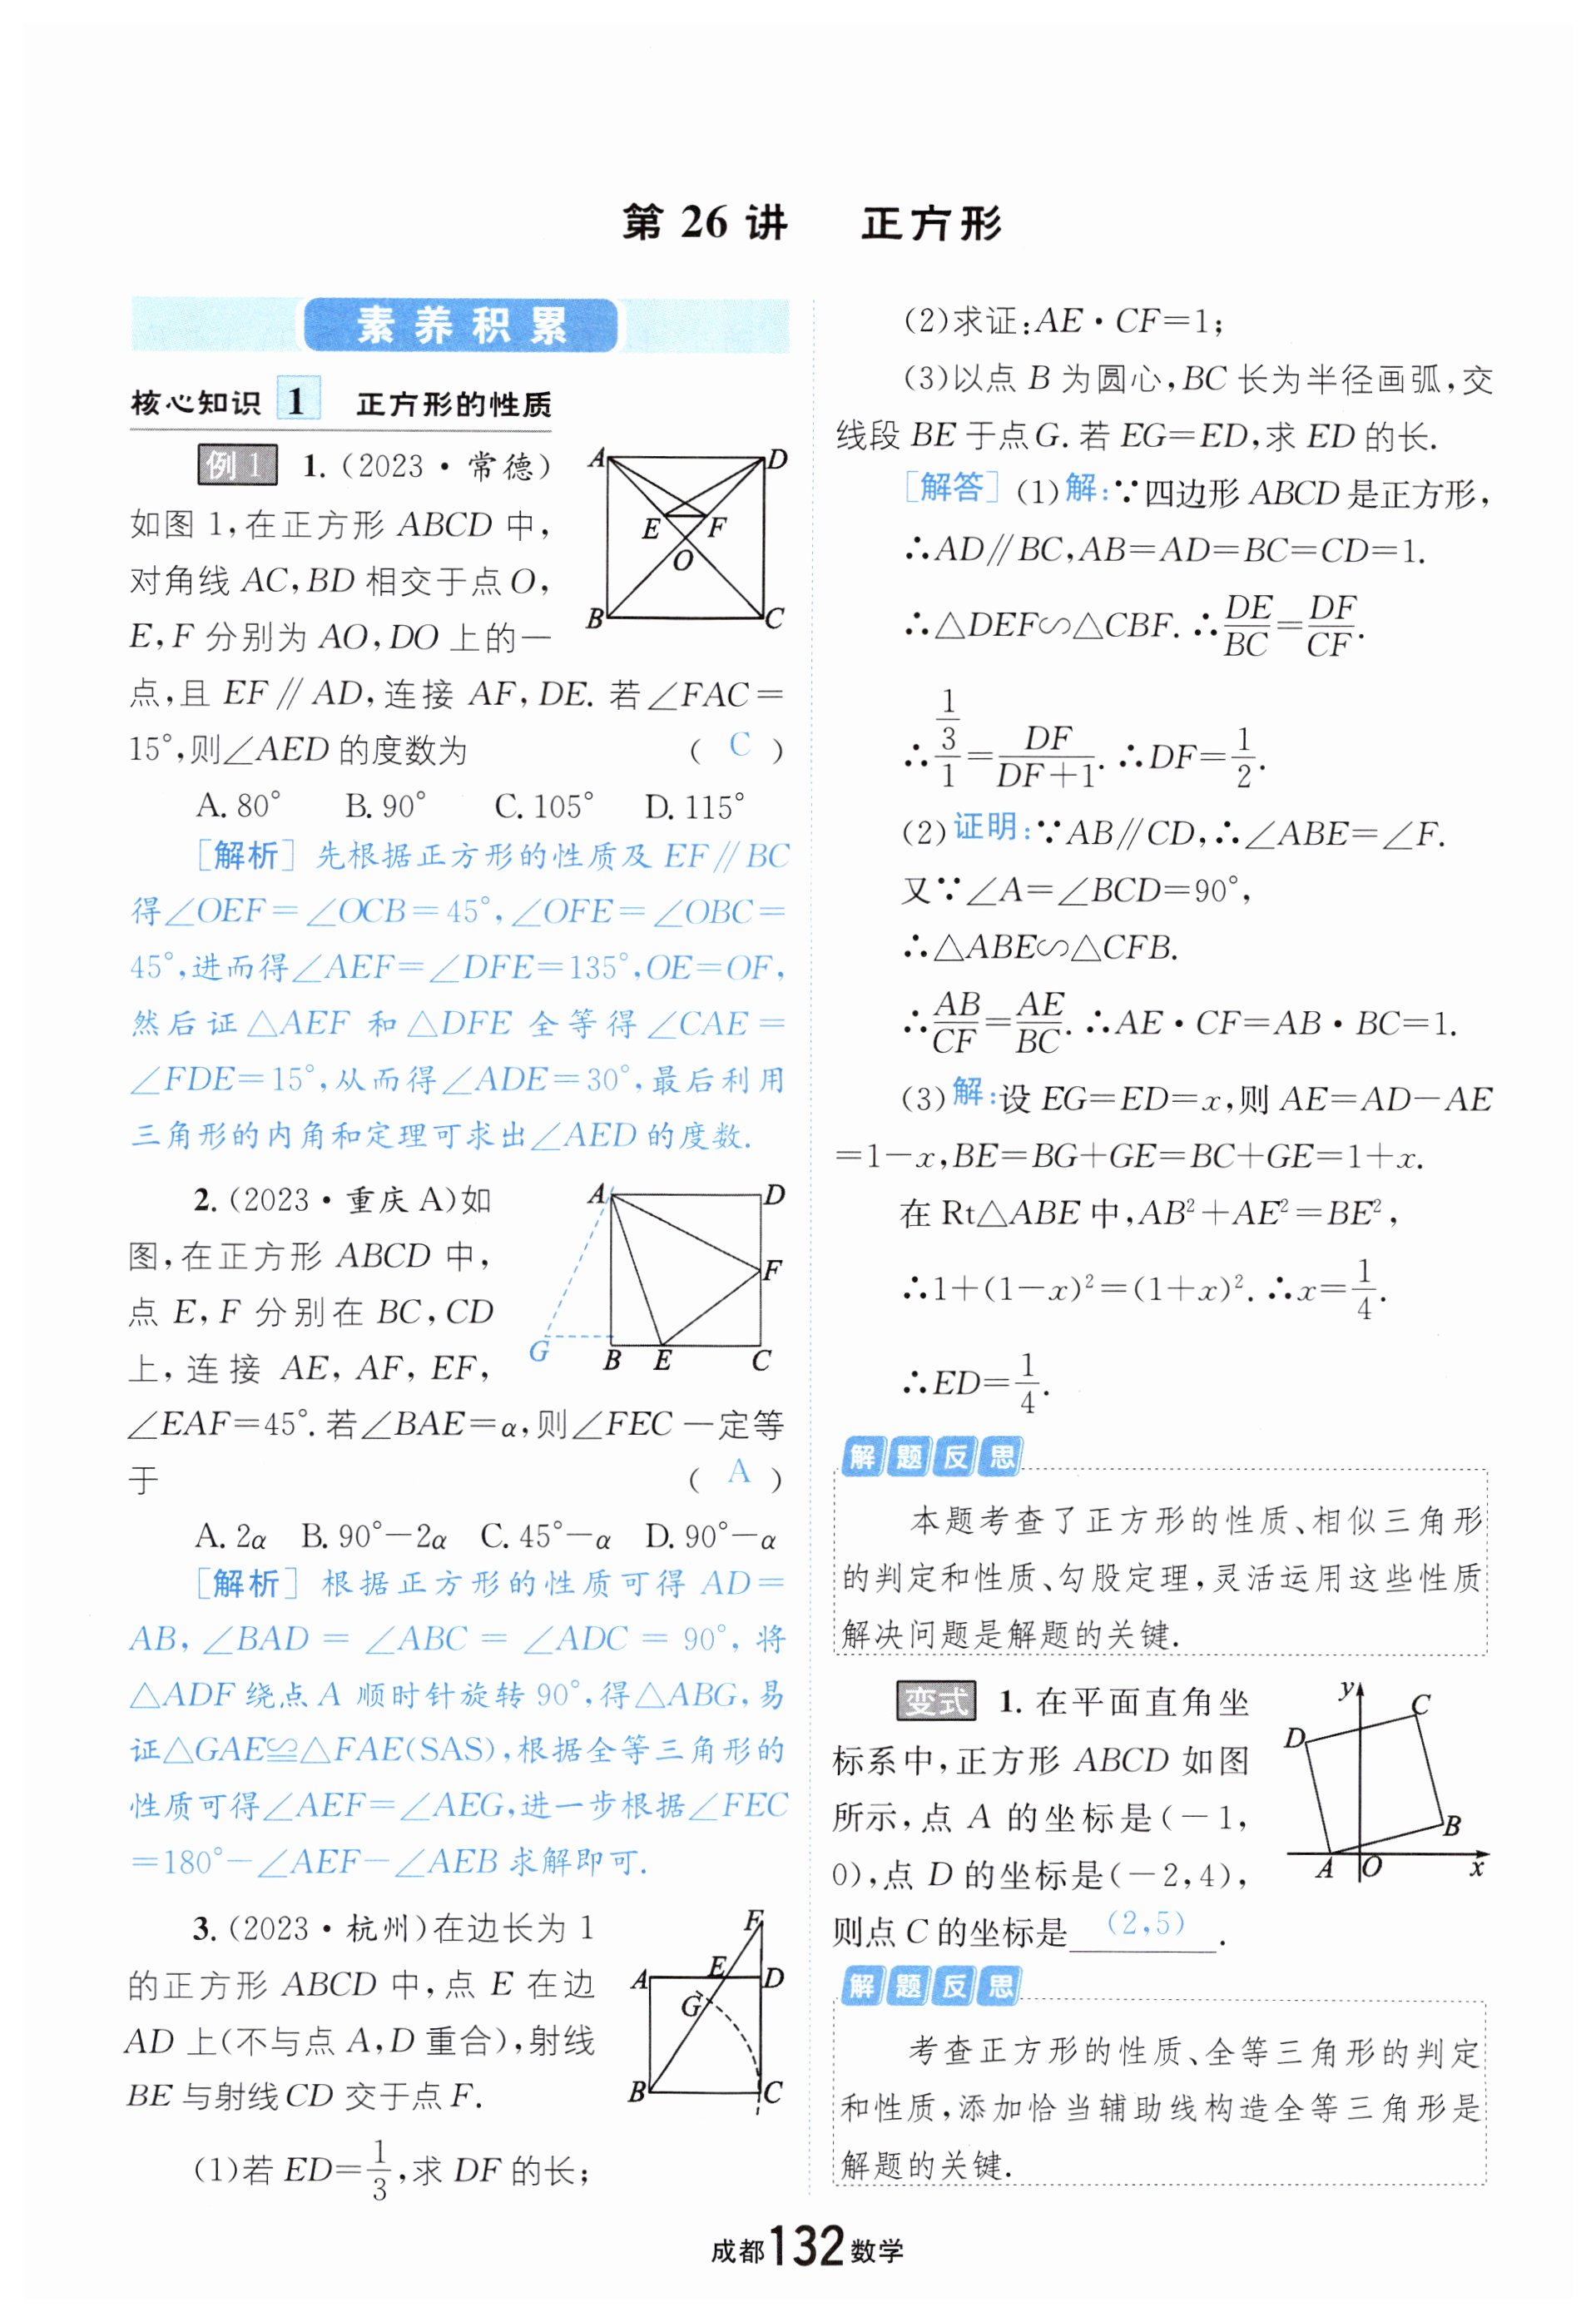 第 26 讲　正方形
素养积累
核心知识 1　正方形的性质
例1　1.(2023·常德)
如图 1,在正方形 ABCD 中,
对角线 AC,BD 相交于点 O,
E,F 分别为 AO,DO 上的一
点,且 EF∥AD,连接 AF,DE. 若∠FAC=
15°,则∠AED 的度数为　( C )
A. 80°　B. 90°　C. 105°　D. 115°
A
D
E
F
O
B
C
[解析] 先根据正方形的性质及 EF∥BC
得∠OEF=∠OCB=45°,∠OFE=∠OBC=
45°,进而得∠AEF=∠DFE=135°,OE=OF,
然后证△AEF 和△DFE 全等得∠CAE=
∠FDE=15°,从而得∠ADE=30°,最后利用
三角形的内角和定理可求出∠AED 的度数.
2.(2023·重庆 A)如
图,在正方形 ABCD 中,
点 E,F 分别在 BC,CD
上,连接 AE,AF,EF,
∠EAF=45°. 若∠BAE=α,则∠FEC 一定等
于　( A )
A. 2α　B. 90°−2α　C. 45°−α　D. 90°−α
A
D
F
G
B
E
C
[解析] 根据正方形的性质可得 AD=
AB,∠BAD=∠ABC=∠ADC=90°,将
△ADF 绕点 A 顺时针旋转 90°,得△ABG,易
证△GAE≌△FAE(SAS),根据全等三角形的
性质可得∠AEF=∠AEG,进一步根据∠FEC
=180°−∠AEF−∠AEB 求解即可.
3.(2023·杭州)在边长为 1
的正方形 ABCD 中,点 E 在边
AD 上(不与点 A,D 重合),射线
BE 与射线 CD 交于点 F.
(1)若 ED=1/3,求 DF 的长;
F
A
E
D
G
B
C
(2)求证:AE·CF=1;
(3)以点 B 为圆心,BC 长为半径画弧,交
线段 BE 于点 G. 若 EG=ED,求 ED 的长.
[解答] (1)解:∵四边形 ABCD 是正方形,
∴AD∥BC,AB=AD=BC=CD=1.
∴△DEF∽△CBF. ∴DE/BC=DF/CF.
∴(1/3)/1=DF/(DF+1). ∴DF=1/2.
(2)证明:∵AB∥CD,∴∠ABE=∠F.
又∵∠A=∠BCD=90°,
∴△ABE∽△CFB.
∴AB/CF=AE/BC. ∴AE·CF=AB·BC=1.
(3)解:设 EG=ED=x,则 AE=AD−AE
=1−x,BE=BG+GE=BC+GE=1+x.
在 Rt△ABE 中,AB²+AE²=BE²,
∴1+(1−x)²=(1+x)². ∴x=1/4.
∴ED=1/4.
解题反思
本题考查了正方形的性质、相似三角形
的判定和性质、勾股定理,灵活运用这些性质
解决问题是解题的关键.
变式　1. 在平面直角坐
标系中,正方形 ABCD 如图
所示,点 A 的坐标是(−1,
0),点 D 的坐标是(−2,4),
则点 C 的坐标是 (2,5) .
y
C
D
B
A
O
x
解题反思
考查正方形的性质、全等三角形的判定
和性质,添加恰当辅助线构造全等三角形是
解题的关键.
成都 132 数学